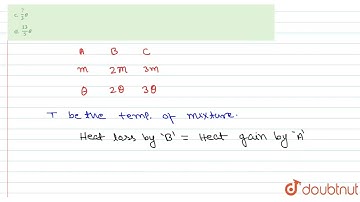 c. 7/3 θ
d. 13/5 θ
A B C
m 2m 3m
θ 2θ 3θ
T be the temp. of mixture.
Heat loss by 'B' = Heat gain by 'A'
doubtnut